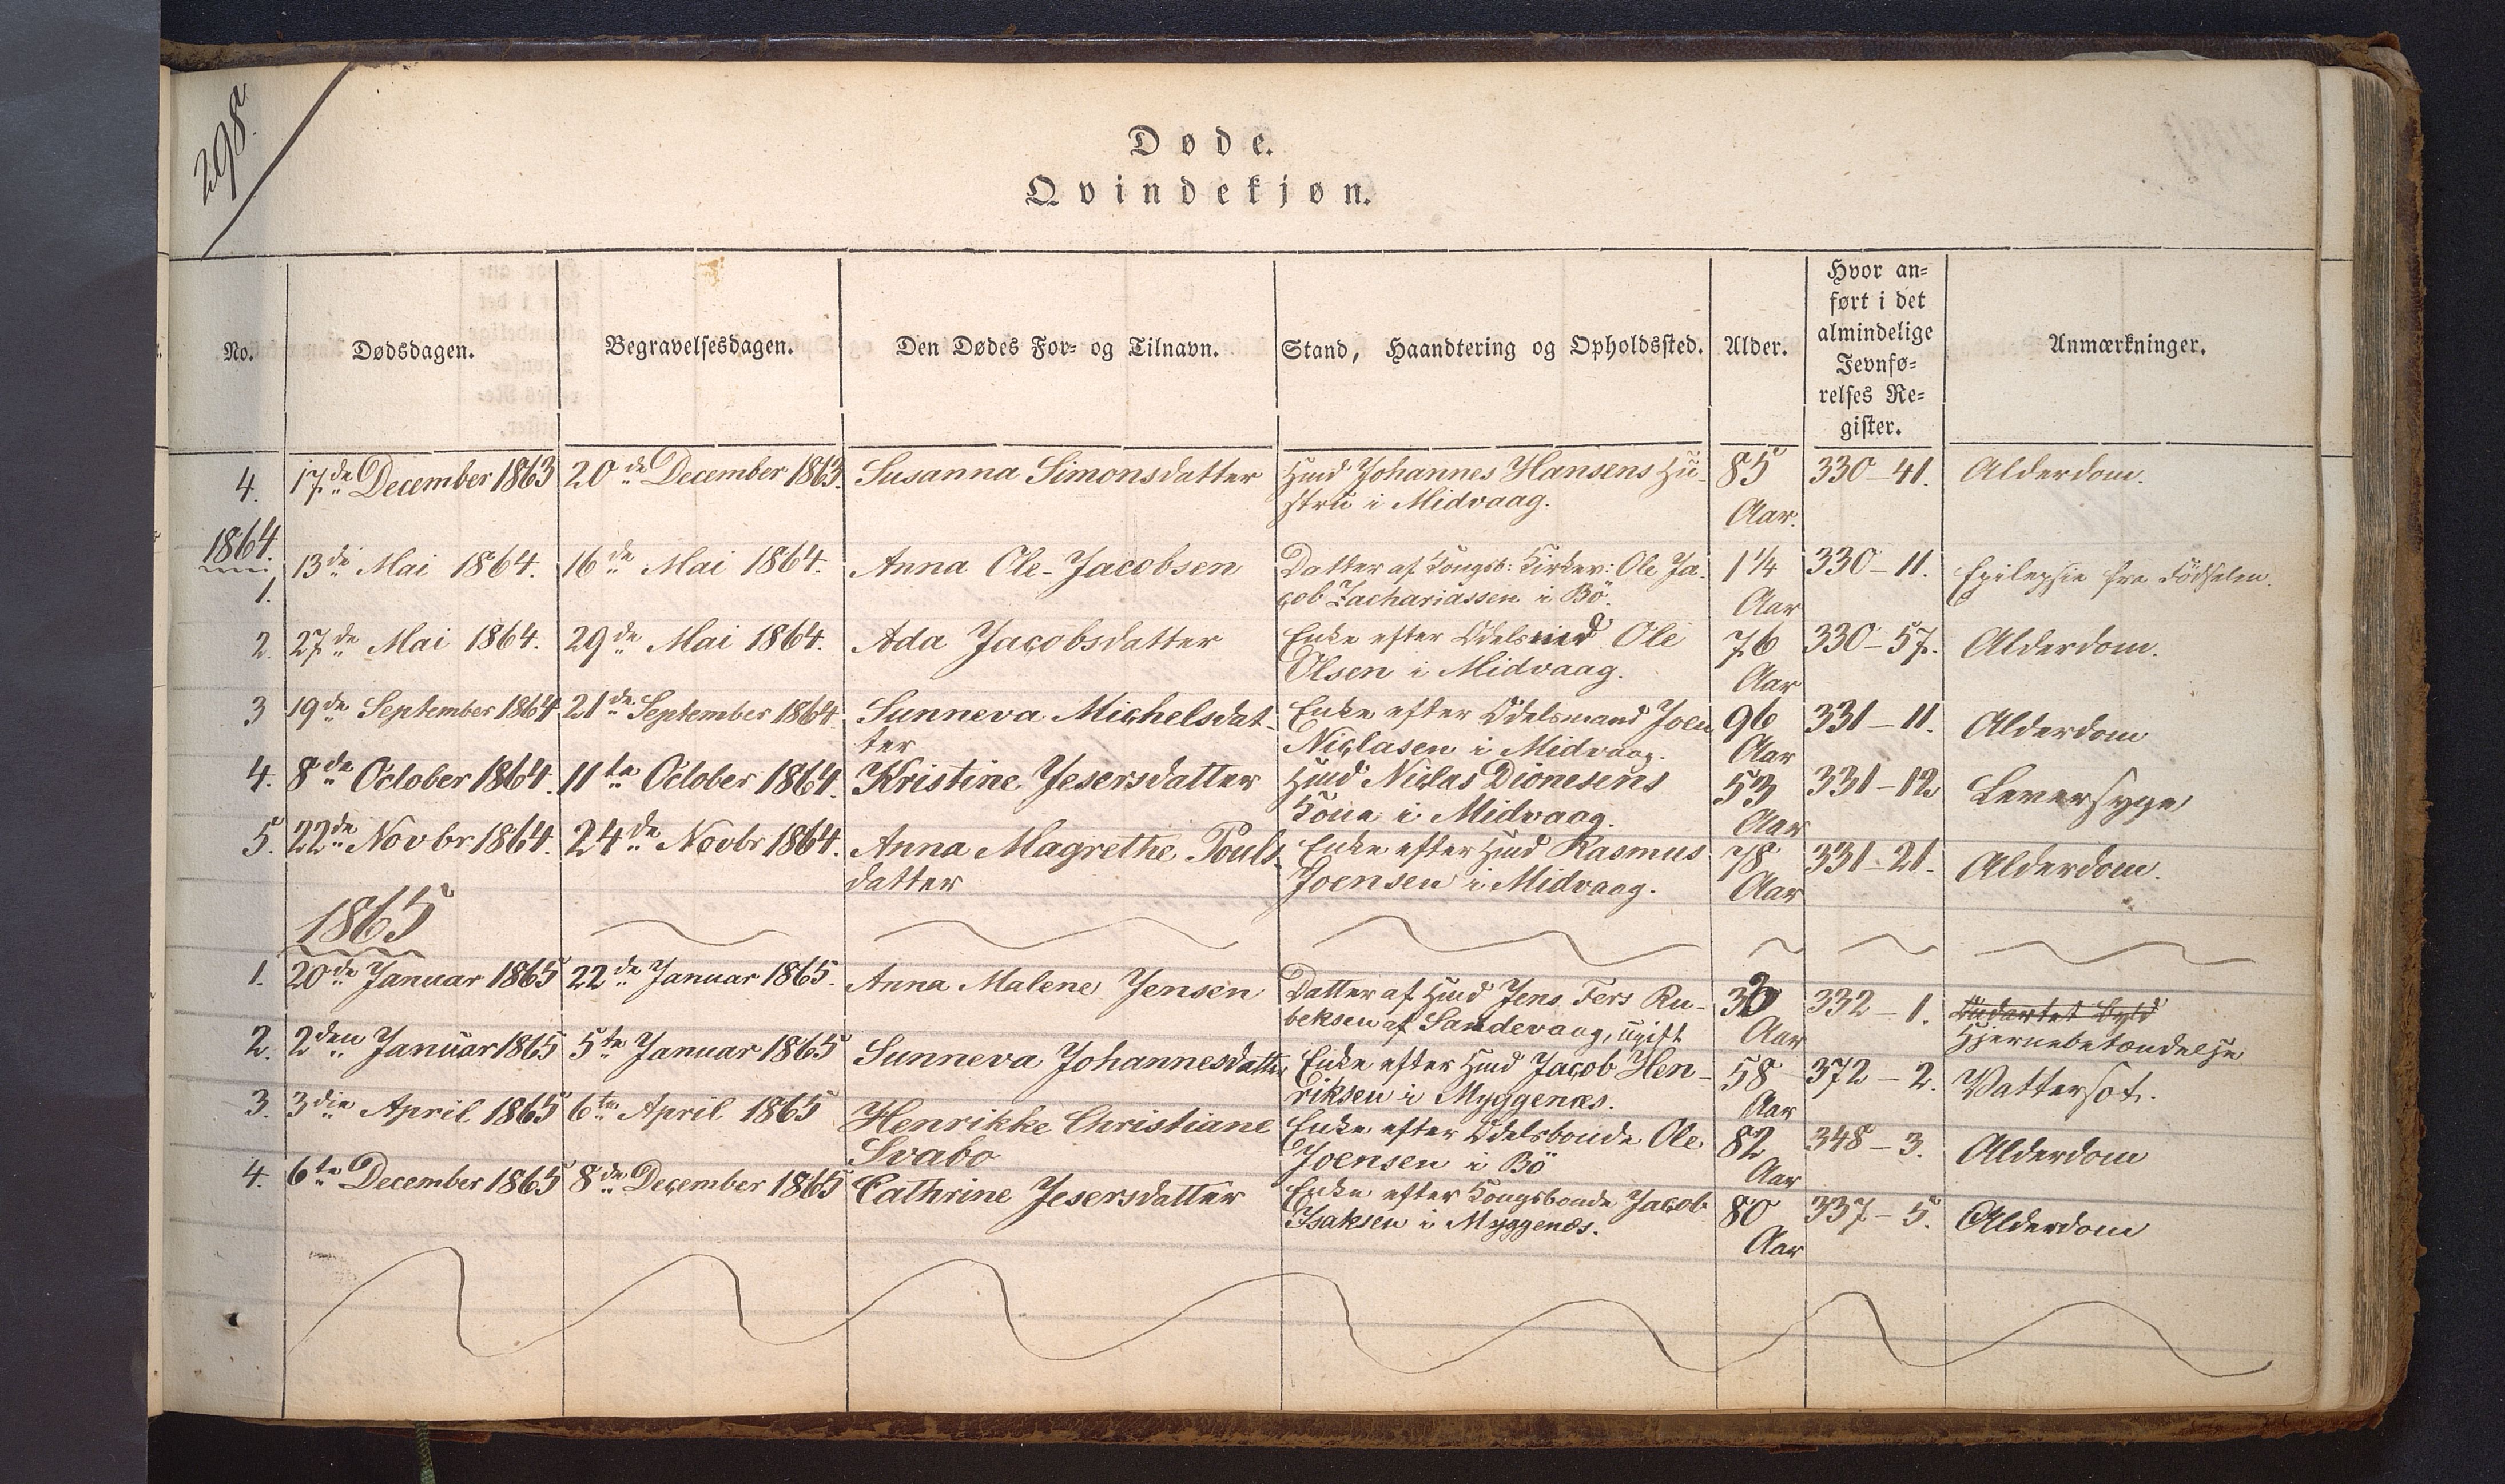 298.
Døde.
Qvindekjøn.
No.
Dødsdagen.
Begravelsesdagen.
Den Dødes For- og Tilnavn.
Stand, Haandtering og Opholdssted.
Alder.
Hvor an-
ført i det
almindelige
Jevnfø-
relses Re-
gister.
Anmærkninger.
4. 17de December 1863 20de December 1863. Susanna Simonsdatter Hmd Johannes Hansens Hu- 85 330-41. Alderdom.
stru i Midvaag. Aar.
1864.
1. 13de Mai 1864. 16de Mai 1864. Anna Ole-Jacobsen Datter af Kongsb: Kirkev: Ole Ja- 1¼ 330-11. Epilepsie fra Födselen.
cob Zachariassen i Bö. Aar
2. 27de Mai 1864. 29de Mai 1864. Ada Jacobsdatter Enke efter Odelsmd Ole 76 330-57. Alderdom.
Olsen i Midvaag. Aar
3 19de September 1864 21de September 1864. Sunneva Michelsdat- Enke efter Odelsmand Joen 96 331-11. Alderdom
ter Niclasen i Midvaag. Aar
4. 8de October 1864. 11te October 1864. Kristine Jesersdatter Hmd Niclas Dionesens 53 331-12 Leversyge
Kone i Midvaag. Aar
5. 22de Novbr 1864. 24de Novbr 1864. Anna Magrethe Pouls- Enke efter Hmd Rasmus 78 331-21. Alderdom.
datter Joensen i Midvaag. Aar
1865
1. 20de Januar 1865 22de Januar 1865. Anna Malene Jensen Datter af Hmd Jens Fers Ru- 36 332-1.
beksen af Sandevaag, ugift Aar Hjernebetændelse
2. 2den Januar 1865 5te Januar 1865 Sunneva Johannesdatter Enke efter Hmd Jacob Hen- 58 372-2. Vattersot.
riksen i Myggenæs. Aar
3. 3die April 1865 6te April 1865 Henrikke Christiane Enke efter Odelsbonde Ole 82 348-3. Alderdom
Svabo Joensen i Bö Aar
4. 6te December 1865 8de December 1865 Cathrine Jesersdatter Enke efter Kongsbonde Jacob 80 337-5. Alderdom
Isaksen i Myggenæs. Aar